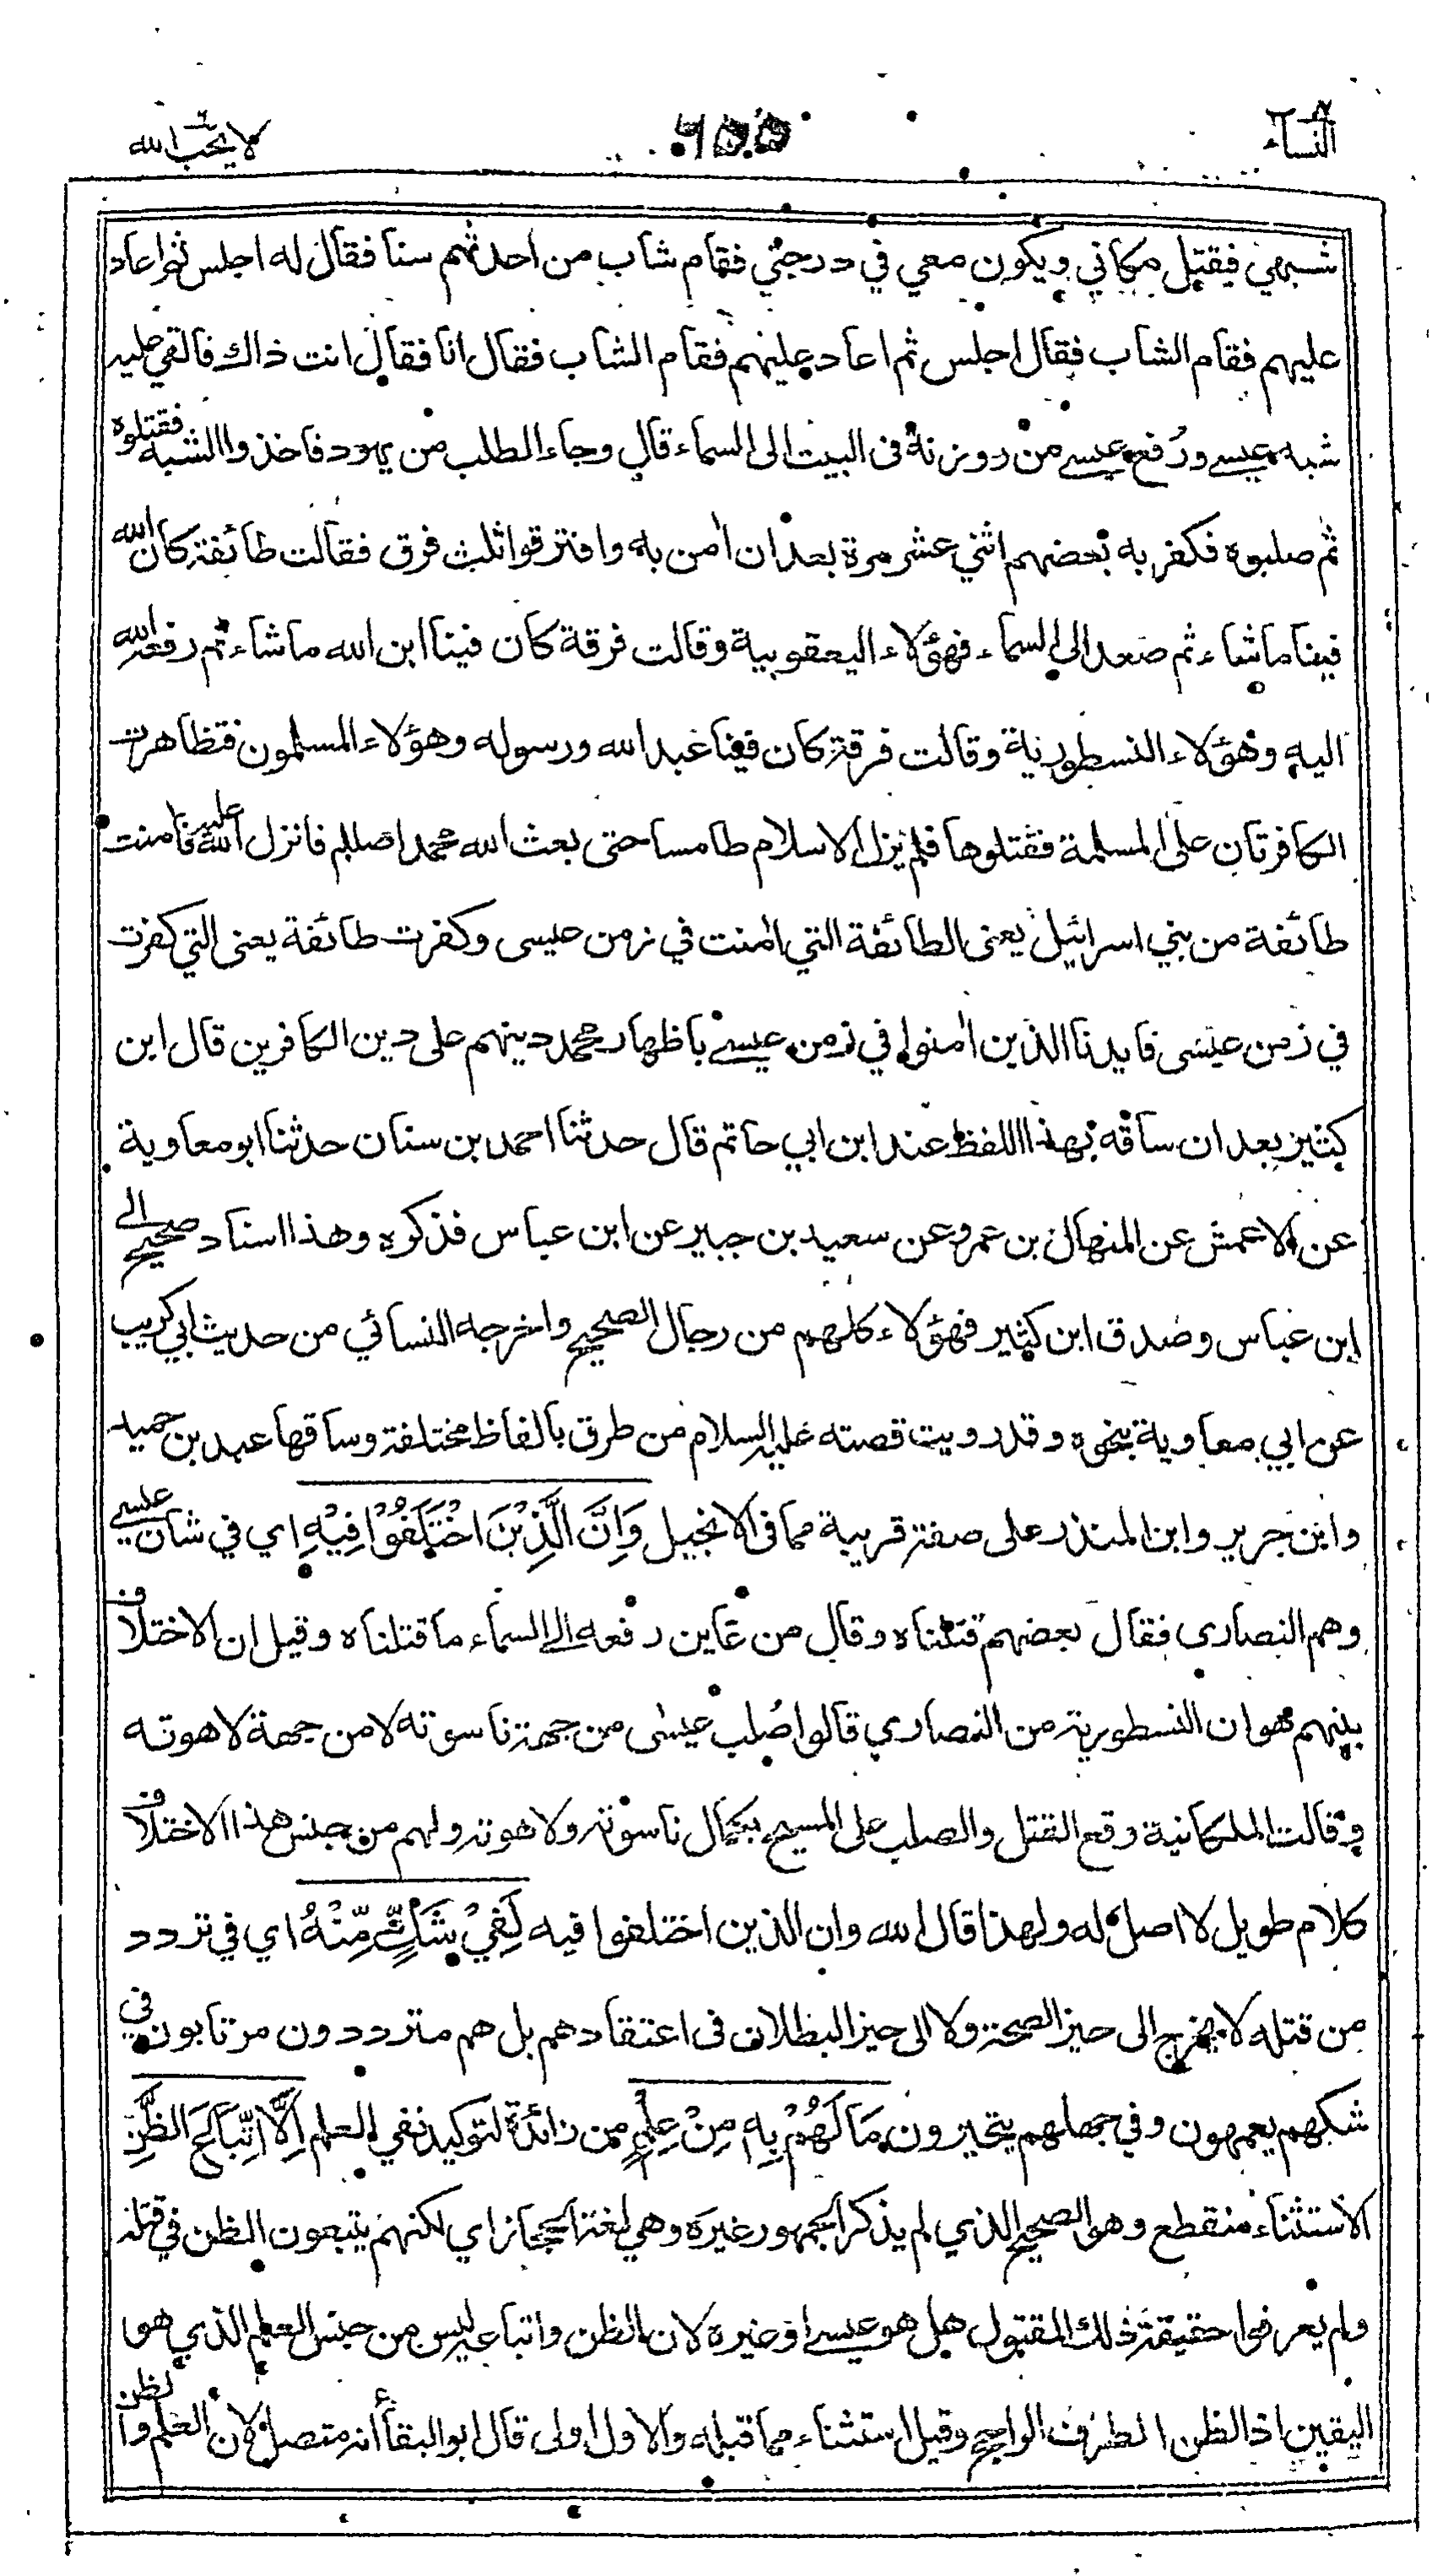 النساء ٦٥٥ لا يحب الله
شبهي فيقتل مكاني ويكون معي في درجتي فقام شاب من احدثهم سنا فقال له اجلس ثم اعاد
عليهم فقام الشاب فقال اجلس ثم اعاد عليهم فقام الشاب فقال انا فقال انت ذاك فالقي عليه
شبه عيسے ورُفع عيسے من روزنة فى البيت الى السماء قال وجاء الطلب من يهود فاخذوا الشبه فقتلوه
ثم صلبوه فكفر به بعضهم اثني عشر مرة بعد ان امن به وافترقوا ثلث فرق فقالت طائفة كان الله
فينا ما شاء ثم صعد الى السماء فهؤلاء اليعقوبية وقالت فرقة كان فينا ابن الله ما شاء ثم رفعه الله
اليه وهؤلاء النسطورية وقالت فرقة كان فينا عبد الله ورسوله وهؤلاء المسلمون فتظاهرت
الكافرتان على المسلمة فقتلوها فلم يزل الاسلام طامسا حتى بعث الله محمدا صللم فانزل الله عليه فامنت
طائفة من بني اسرائيل يعنى الطائفة التي امنت في زمن عيسى وكفرت طائفة يعنى التي كفرت
في زمن عيسى فايدنا الذين امنوا في زمن عيسے باظهار محمد دينهم على دين الكافرين قال ابن
كثير بعد ان ساقه بهذا اللفظ عند ابن ابي حاتم قال حدثنا احمد بن سنان حدثنا ابو معاوية
عن الاعمش عن المنهال بن عمرو عن سعيد بن جبير عن ابن عباس فذكره وهذا اسناد صحيح الى
ابن عباس وصدق ابن كثير فهؤلاء كلهم من رجال الصحيح واخرجه النسائي من حديث ابي كريب
عن ابي معاوية بنحوه وقد رويت قصته عليه السلام من طرق بالفاظ مختلفة وساقها عبد بن حميد
وابن جرير وابن المنذر على صفة قريبة مما فى الانجيل وَاِنَّ الَّذِيْنَ اخْتَلَفُوْا فِيْهِ اي في شان عيسے
وهم النصارى فقال بعضهم قتلناه وقال من عاين رفعه الى السماء ما قتلناه وقيل ان الاختلاف
بينهم هو ان النسطورية من النصارى قالوا صُلب عيسى من جهة ناسوته لا من جهة لاهوته
وقالت الملكانية وقع القتل والصلب على المسيح بكمال ناسوته ولاهوته ولهم من جنس هذا الاختلاف
كلام طويل لا اصل له ولهذا قال الله وان الذين اختلفوا فيه لَفِيْ شَكٍّ مِّنْهُ اي في تردد
من قتله لا يخرج الى حيز الصحة ولا الى حيز البطلان فى اعتقادهم بل هم مترددون مرتابون في
شكهم يعمهون وفي جهلهم يتحيرون مَا لَهُمْ بِهٖ مِنْ عِلْمٍ من زائدة لتوكيد نفي العلم اِلَّا اتِّبَاعَ الظَّنِّ
الاستثناء منقطع وهو الصحيح الذي لم يذكر الجمهور غيره وهي لغة الحجاز اي لكنهم يتبعون الظن في قتله
ولم يعرفوا حقيقة ذلك المقتول هل هو عيسے او غيره لان الظن واتباعه ليس من جنس العلم الذي هو
اليقين اذ الظن الطرف الراجح وقيل استثناء مما قبله والاول اولى قال ابو البقاء انه متصل لان العلم والظن